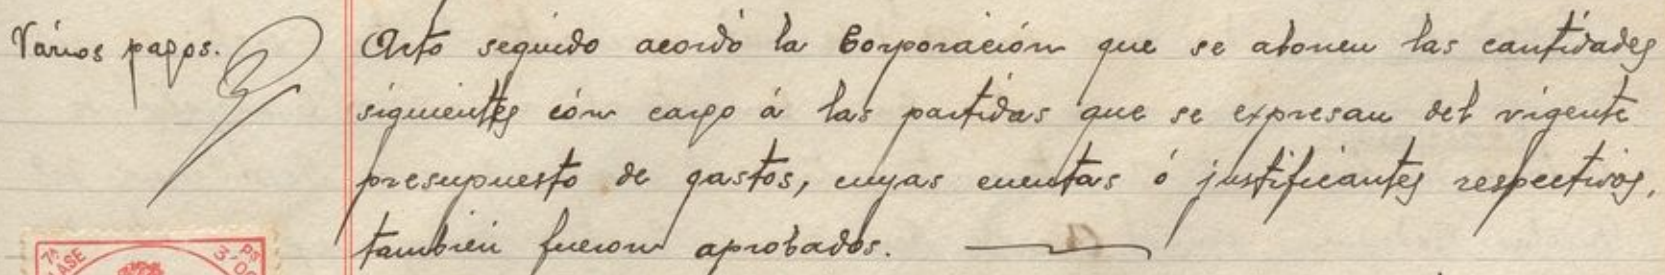 Vários pagos.
Acto seguido acordó la Corporación que se abonen las cantidades
siguientes cón cargo á las partidas que se expresan del vigente
presupuesto de gastos, cuyas cuentas ó justificantes respectivos,
también fueron aprobados.
7ª
CLASE
3'00
Ps